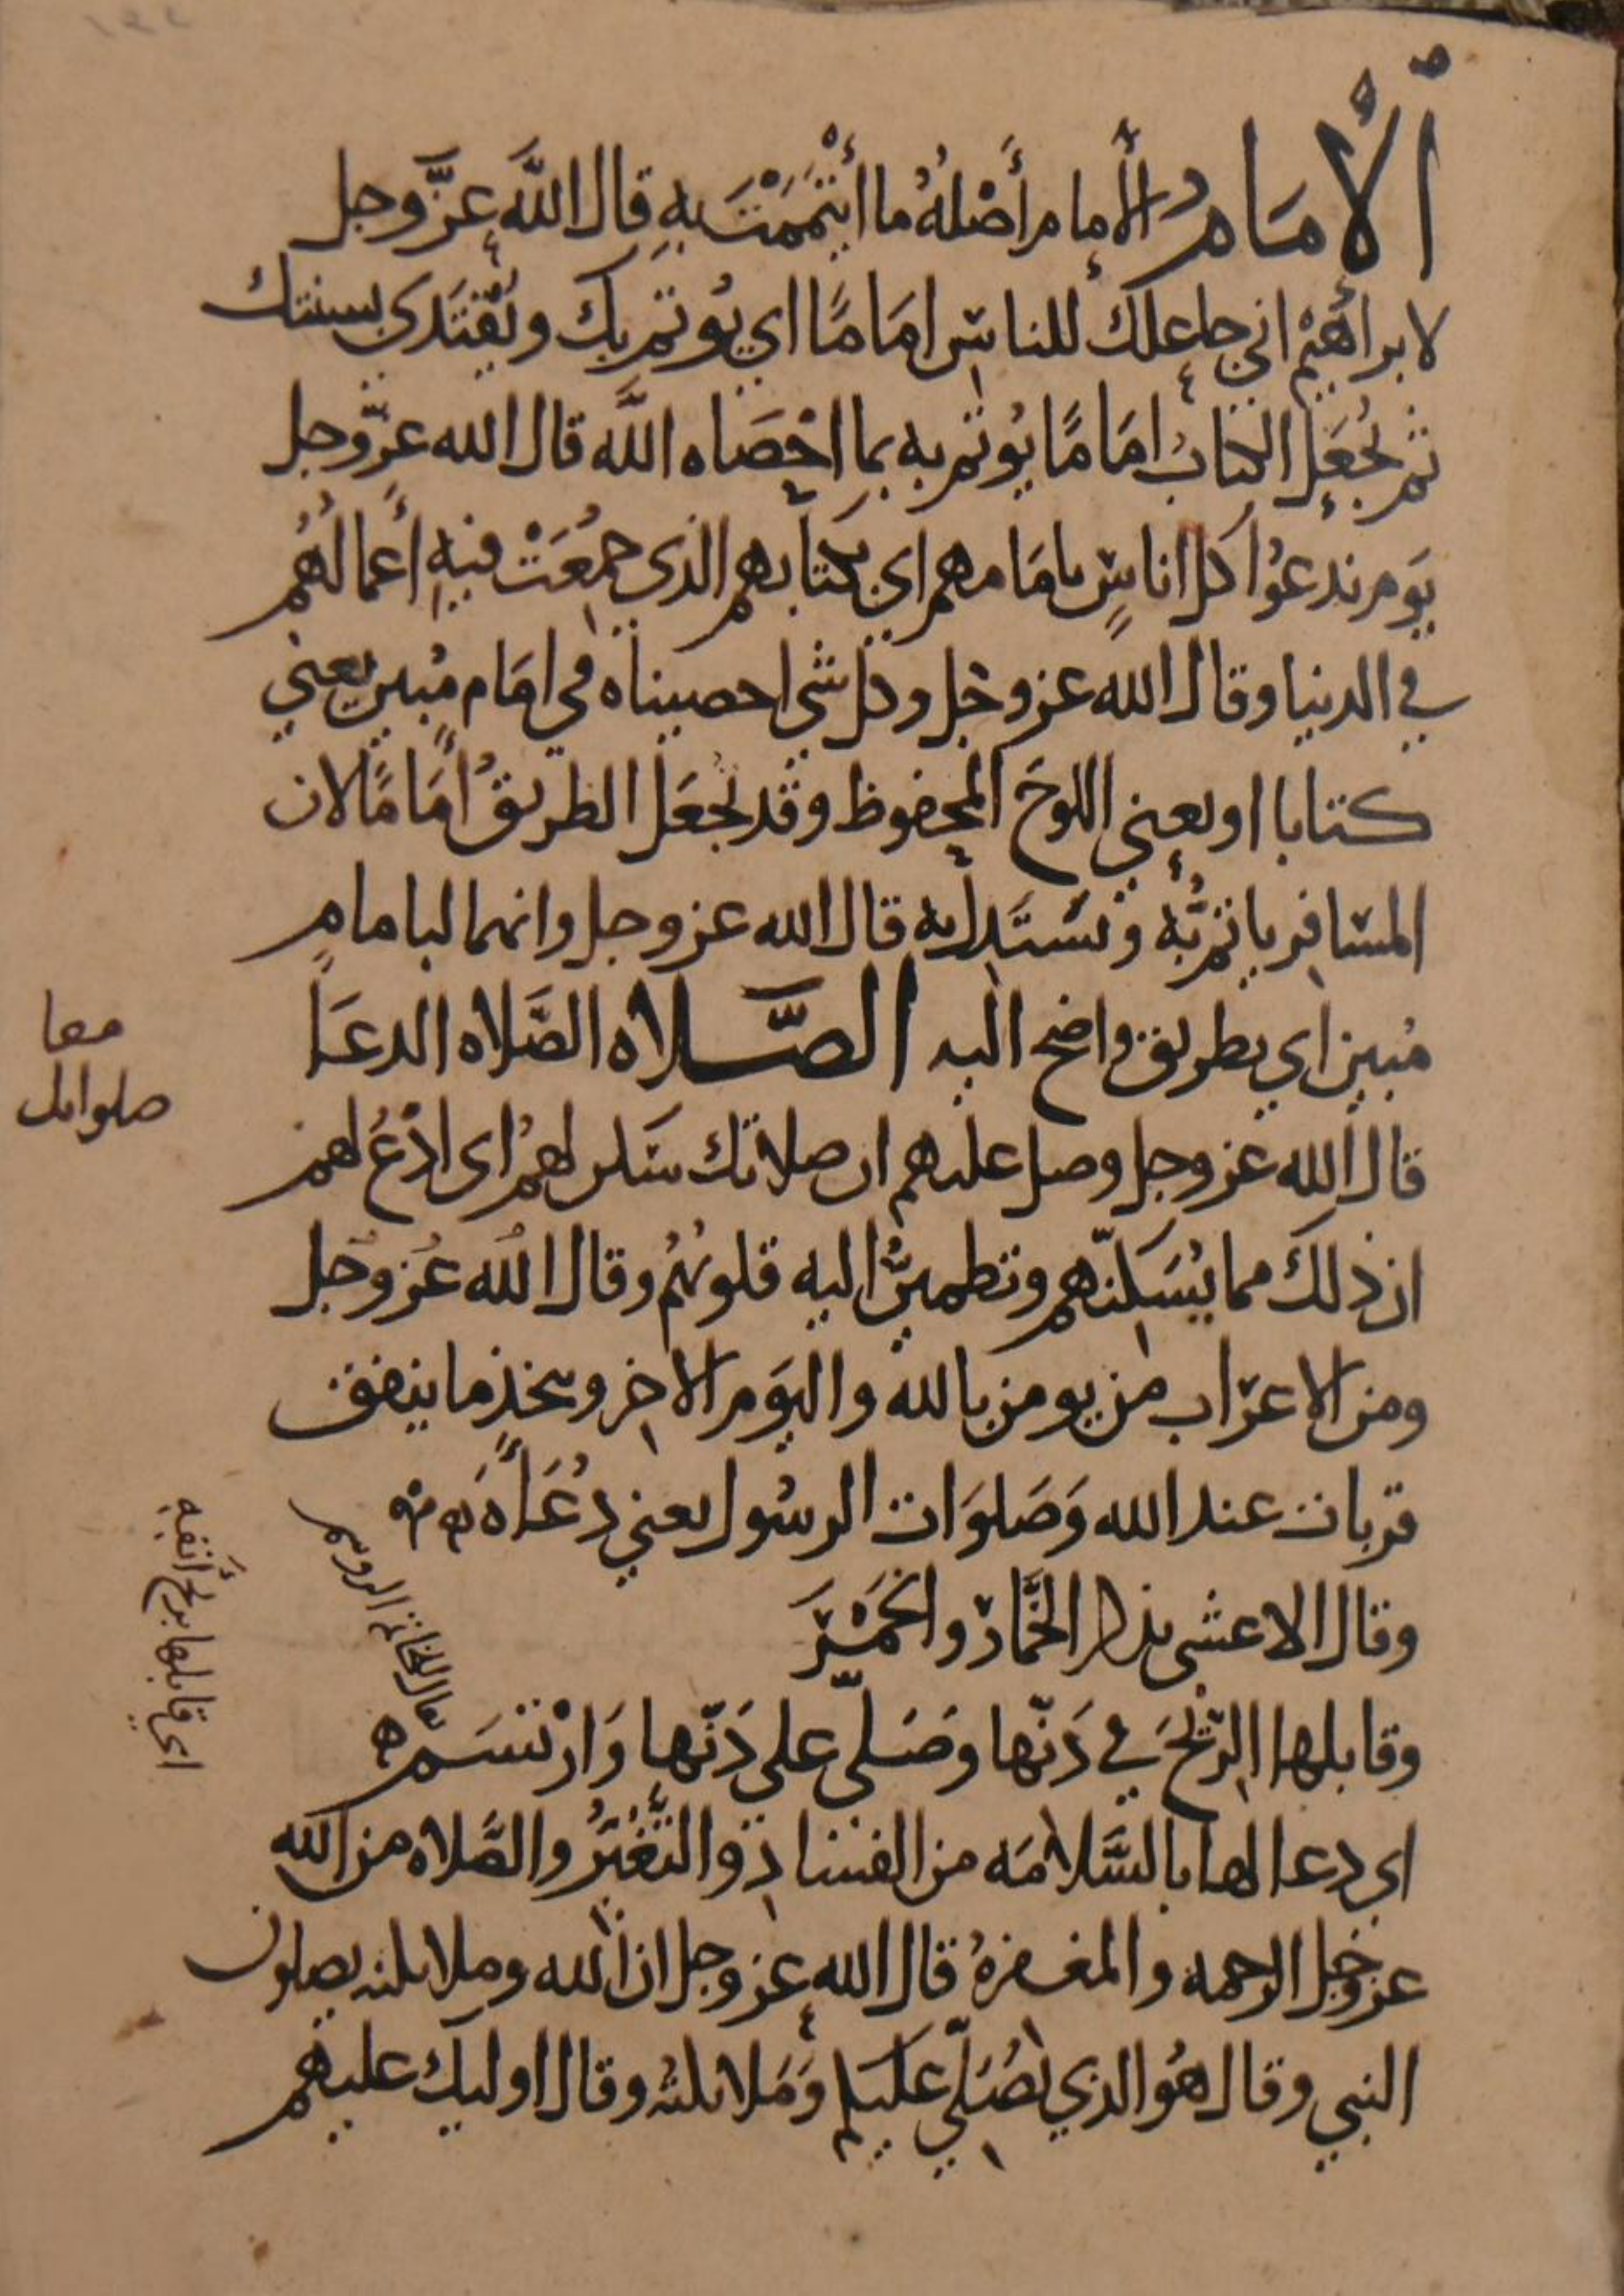 الإمَامُ الأمام أَصْلُهُ ما أْتَمَمْتَ بِهِ قال اللَّه عزَّ وجل
لابراهيم اني جاعلك للناس امَامًا اي يُوتم بك ويُقتَدَى بسنتك
ثم يُجعَل الكتابُ امَامًا يُوتم به بما احْصَاه اللَّه قال الله عزَّ وجل
يَوم ندعُوا كل اناسٍ بامَامهم اي بكتابهم الذي جمُعَتْ فيهِ أَعمالُهُم
في الدنيا وقال الله عز وجل وكل شي احصيناه في امَام مُبين يعني
كتابا او يعني اللوحَ المحفوظ وقد يُجعَل الطريقُ أمَامًا لان
المسافر ياتمُّ به ويَستَدل به قال الله عز وجل وانهما لبامامٍ
مُبين اي بطريق واضح البه الصَّلاه الصَّلاه الدعَا
قال الله عز وجل وصل عليهم ان صلاتك سَكن لهمُ اى ادْعُ لهم
ان ذلك مما يُسَكِنّهم وتطمينُّ اليه قلوبُهُم وقال الله عز وجل
ومن الاعرَاب من يومن بالله واليَوم الاخِر ويتخذ ما ينفق
قربات عند الله وَصَلوَات الرسُول يعني دُعَاًهَ
وقال الاعشى يذكر الخَّمارَ والخَمْرَ
وقابلها الرّيحَ في دَنّها وصَلى على دَنّها وَارْتسَم
اي دعا لها بالسَّلامَه من الفسَاد والتَّغيُّرُ والصَّلاه من الله
عز وجل الرحمه والمغفرهُ قال الله عز وجل ان الله وملايكته يصلون
النبي وقال هوُ الذي يُصَلّي عليكم وَمَلايكتهُ وقال اوليك عليهم
معا
صلوا
اي قابلها بريح أَنفِهِ